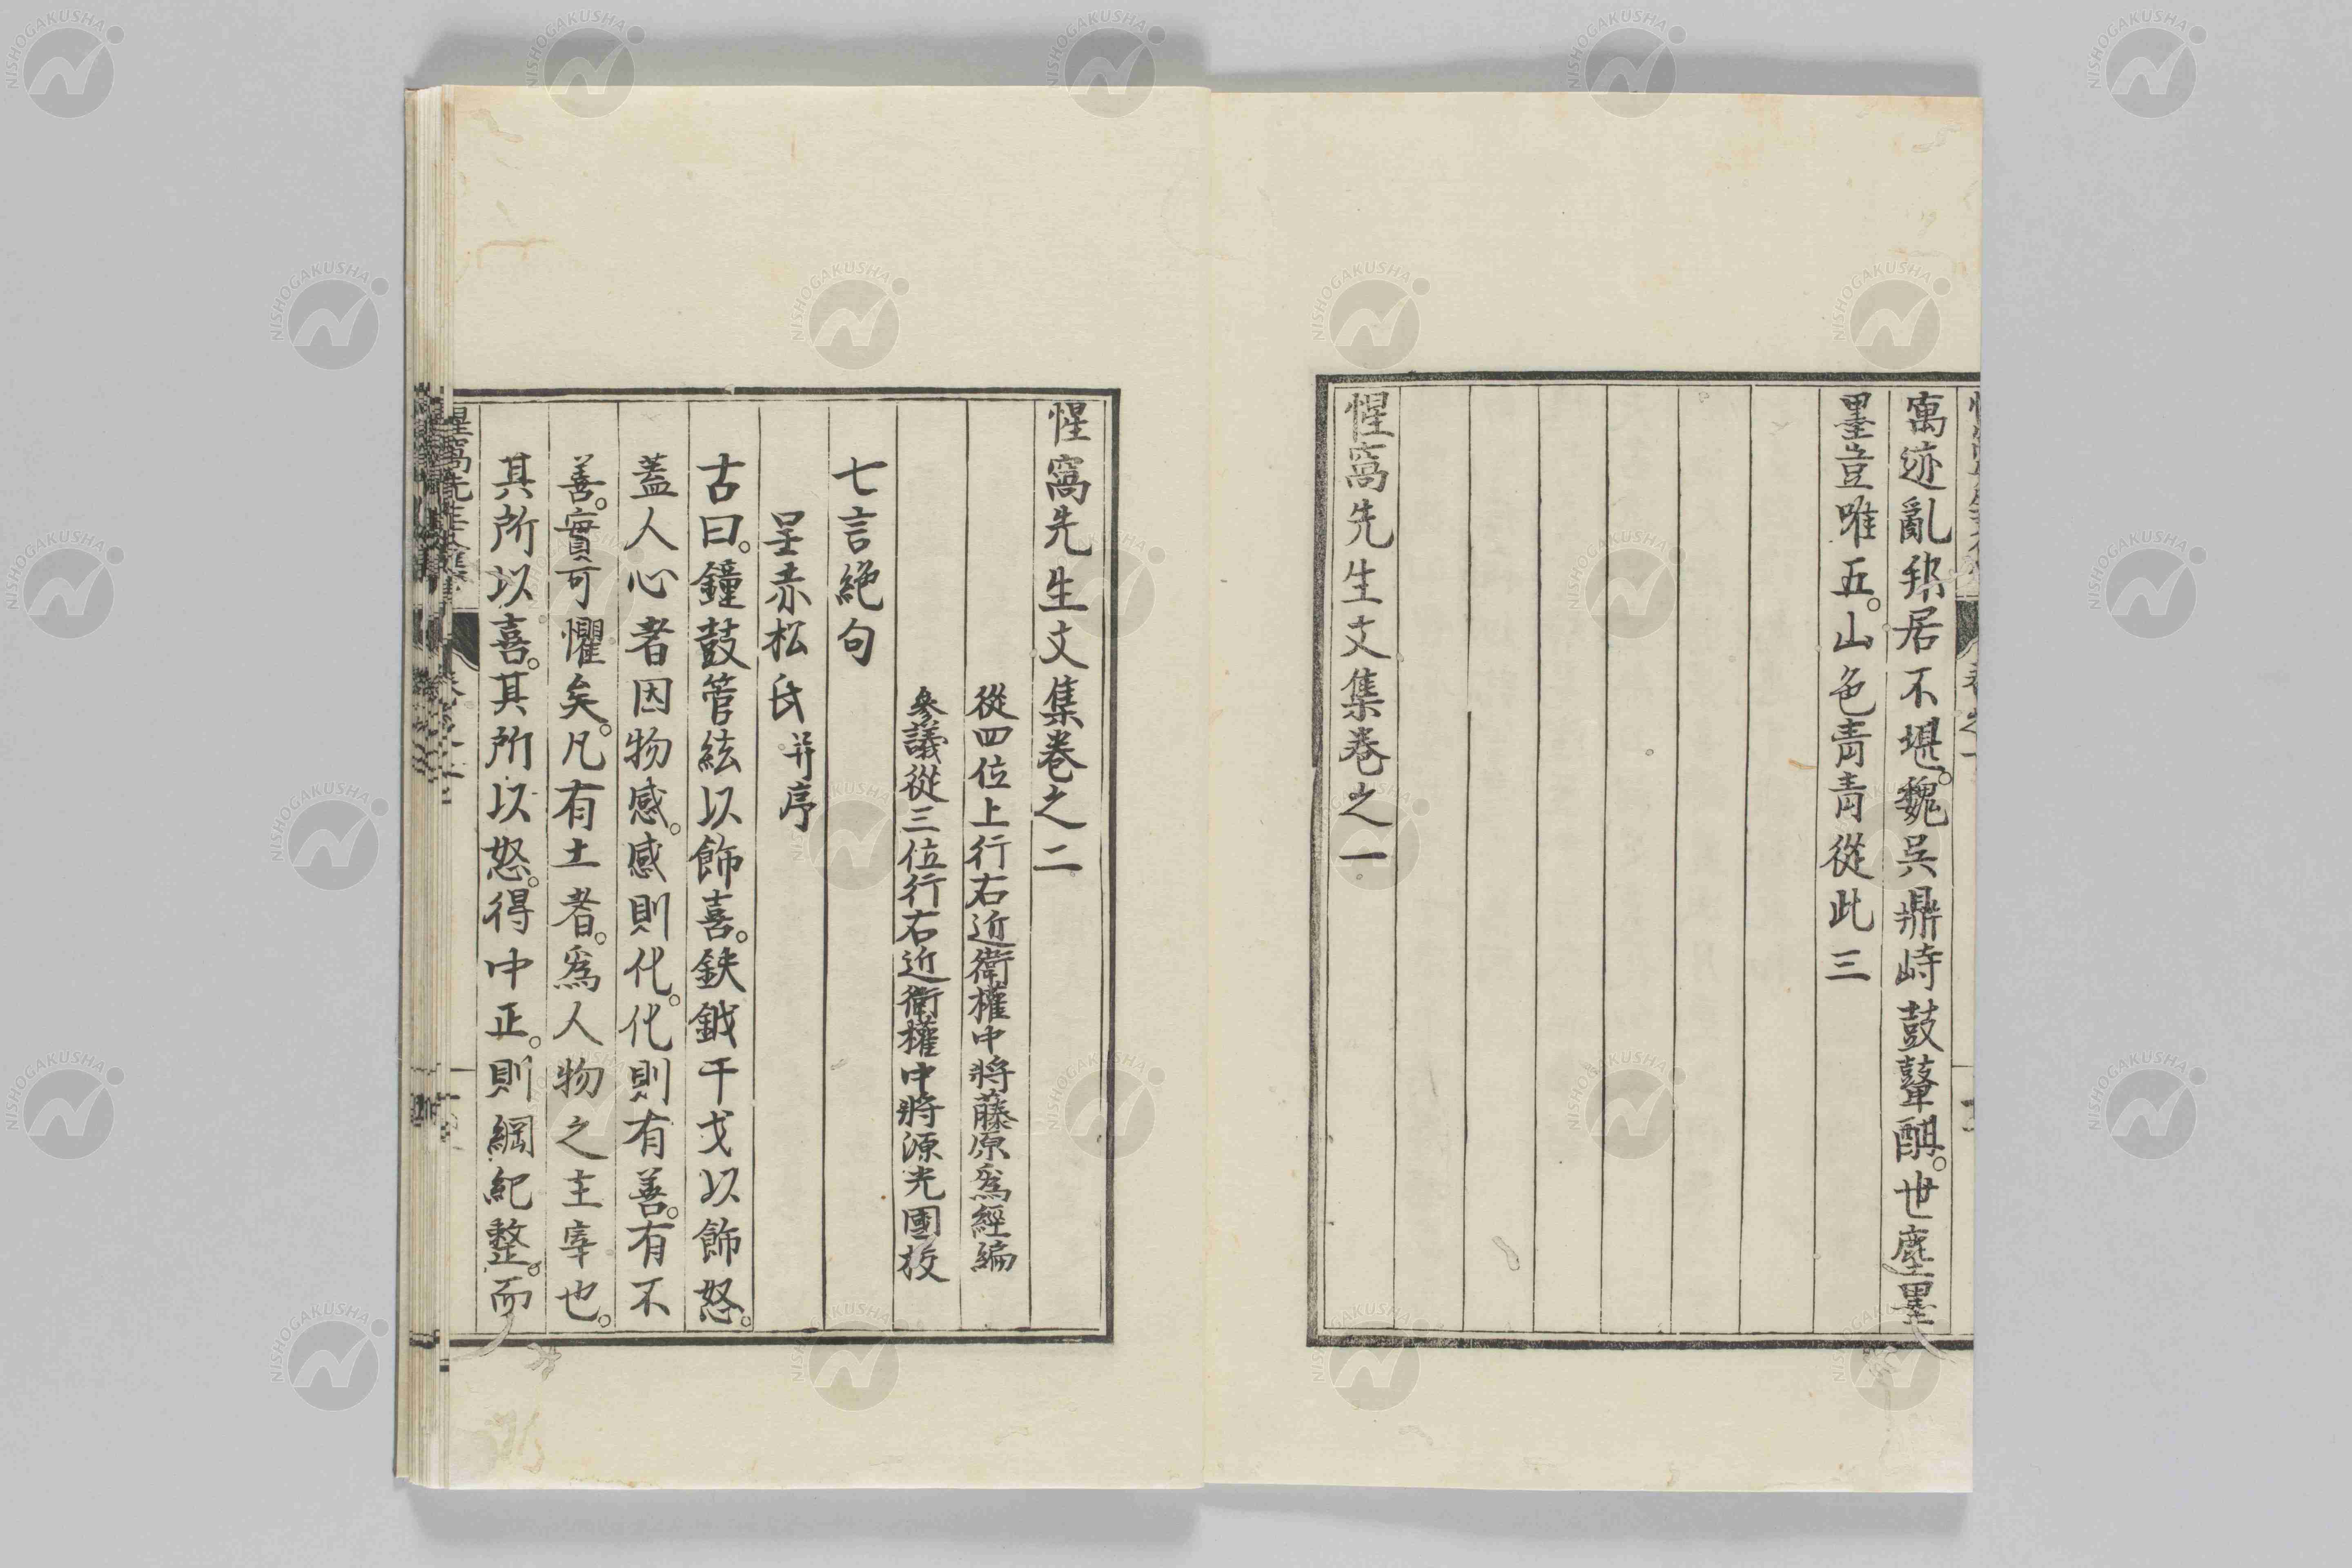 寓迹亂邦居不堪。魏吳鼎峙鼓鼙酣。世塵墨
墨豈唯五。山色靑靑從此三
惺窩先生文集卷之一
惺窩先生文集卷之二
從四位上行右近衛權中將藤原爲經編
參議從三位行右近衛權中將源光國校
七言絶句
呈赤松氏并序
古曰。鐘鼓管絃以飾喜。鈇鉞干戈以飾怒。
蓋人心者因物感。感則化。化則有善。有不
善。實可懼矣。凡有土者。爲人物之主宰也。
其所以喜。其所以怒。得中正。則綱紀整。而
NISHOGAKUSHA